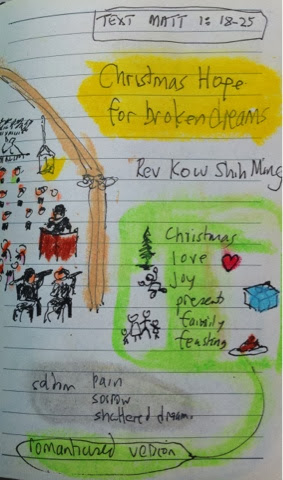 TEXT MATT 1:18-25
Christmas Hope
for broken dreams
Rev Kow Shih Ming
Christmas
love
joy
present
family
feasting
pain
sorrow
shattered dream.
romanticised